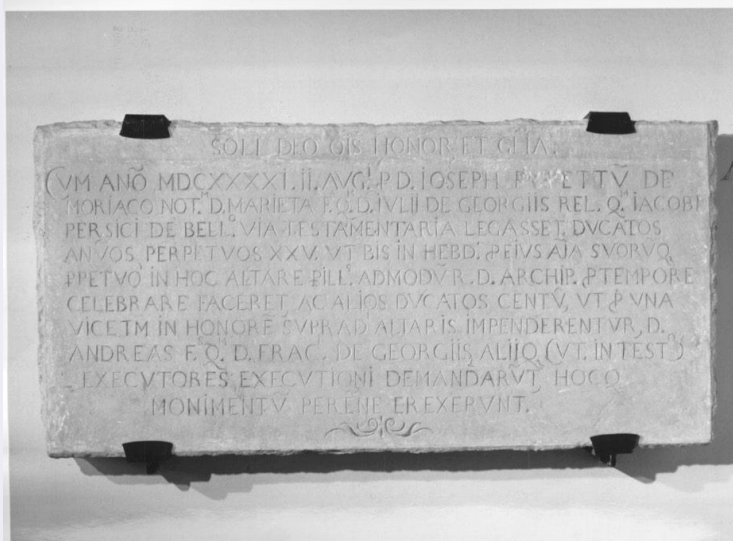 SOLI DEO OIS HONOR ET GLIA.
CVM ANÑO MDCXXXXI. II. AVG. P D. IOSEPH DE
MORIACO NOT. D. MARIETA F. Q. D. IVLII DE GEORGIIS REL. Q. IACOBI
PERSICI DE BELL. VIA TESTAMENTARIA LEGASSET DVCATOS
ANVOS PERPETVOS XXV. VT BIS IN HEBD. PEIVS AĪA SVORVQ
PPETVO IN HOC ALTARE PILL. ADMODV̄ R. D. ARCHIP. PTEMPORE
CELEBRARE FACERET AC ALIOS DVCATOS CENTV̄, VT P VNA
VICE TM IN HONORĒ SVPRAD ALTARIS IMPENDERENTVR, D.
ANDREAS F. Q. D. FRAC. DE GEORGIIS ALIIQ (VT. IN TEST.)
EXECVTORES EXECVTIONI DEMANDARV̄T HOCQ
MONIMENTV̄ PERENE EREXERVNT.